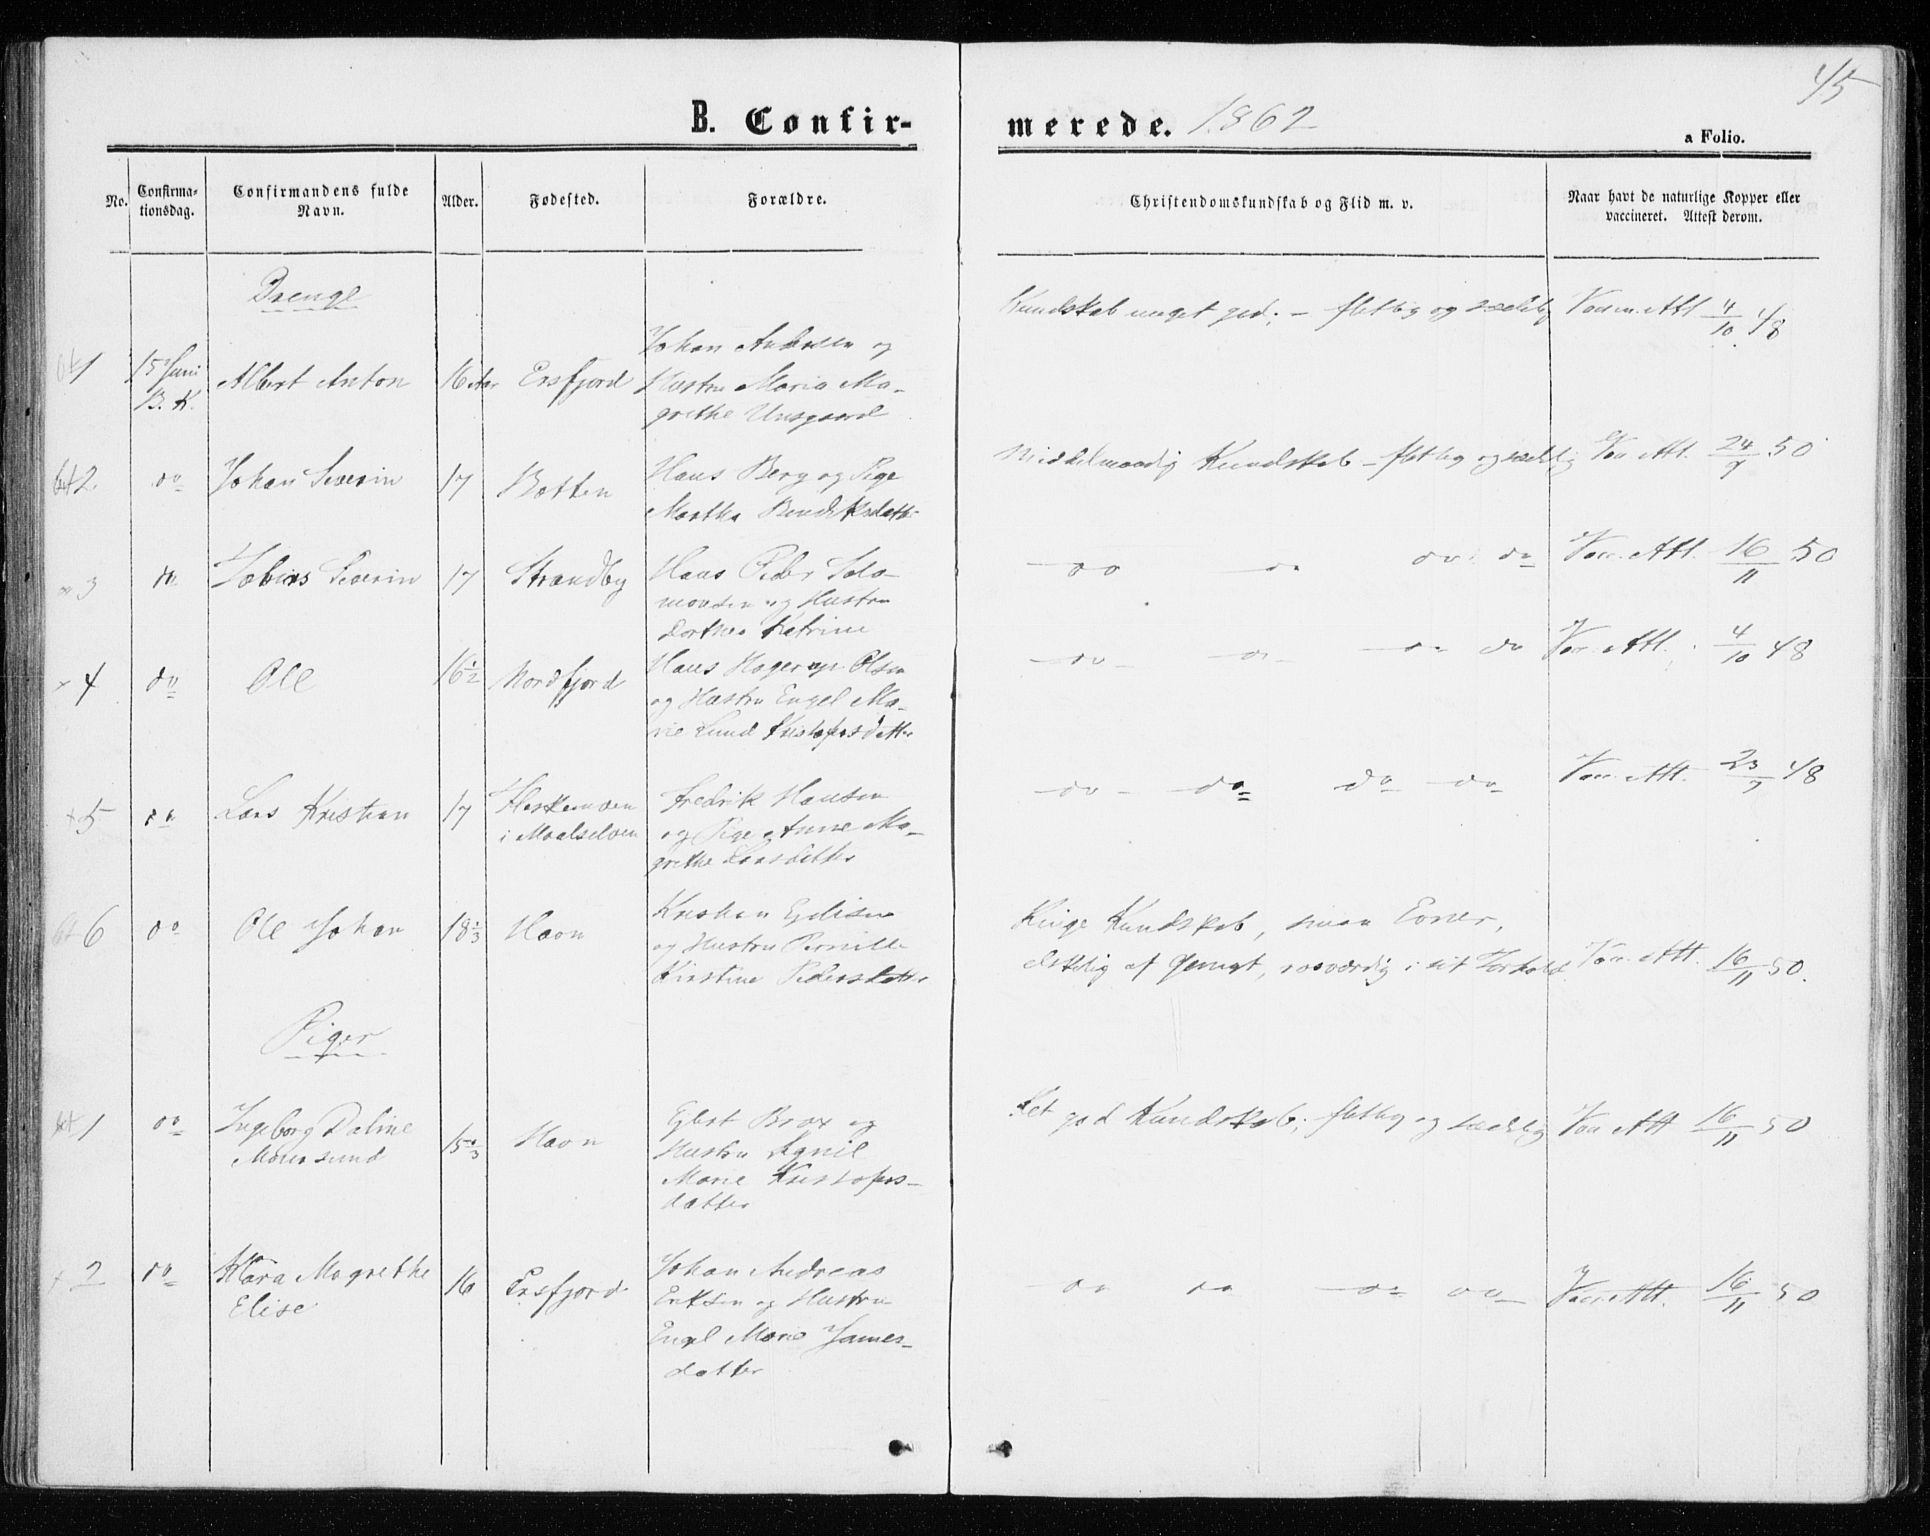 45
B. Confir-
merede. 1862
a Folio.
No.
Confirma-
tionsdag.
Confirmandens fulde
Navn.
Alder.
Fødested.
Forældre.
Christendomskundskab og Flid m. v.
Naar havt de naturlige Kopper eller
vaccineret. Attest derom.
Drenge
1
15 Juni
B. K.
Albert Anton
16 Aar
Ersfjord
Johan Andersen og
Hustru Maria Ma-
grethe Unsgaard
Kundskab meget god; – flittig og sædelig
Vacc. Att 4/10 48
2
do
Johan Severin
17
Botten
Hans Berg og Pige
Martha Bendiksdatter
Middelmaadig Kundskab – flittig og sædelig
Vacc Att. 24/9 50
3
do
Tobias Severin
17
Strandby
Hans Peder Salo-
monsen og Hustru
Dorthea Katrine
do do do do
Vacc. Att. 16/11 50
4
do
Ole
16 1/2
Nordfjord
Hans Hagerup Olsen
og Hustru Engel Ma-
rie Lund Kristofersdatter
do do do do
Vac. Att. 4/10 48
5
do
Lars Kristian
17
i Maalselven
Fredrik Hansen
og Pige Anne Ma-
grethe Larsdatter
do do do do
Vacc. Att. 23/9 48
6
do
Ole Johan
18 1/3
Havn
Kristian
og Hustru Pernille
Kirstine Pedersdatter
Ringe Kundskab, smaa Evner,
elskelig af Gemyt, rosværdig i sit Forhold
Vacc. Att. 16/11 50.
Piger
1
do
Ingeborg Daline
15 2/3
Havn
Ejlert Brox og
Hustru
Marie Kristofers-
datter
Ret god Kundskab; flittig og sædelig
Vacc Att 16/11 50
2
do
Klara Magrethe
Elise
16
Ersfjord
Johan Andreas
Eriksen og Hustru
Engel Marie James-
datter
do do do do
Vacc. Att. 16/11 50